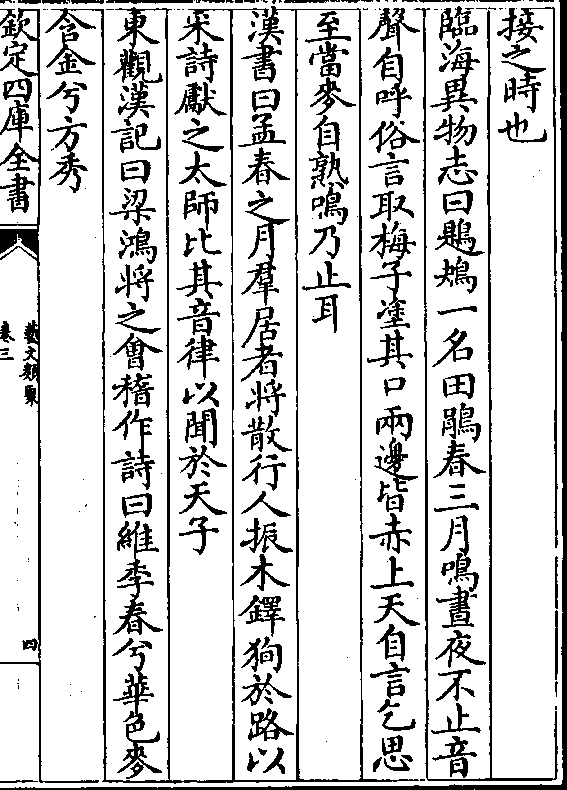 接之時也
臨海異物志曰鶗鴂一名田鵑春三月鳴晝夜不止音
聲自呼俗言取梅子塗其口兩邊皆赤上天自言乞思
至當麥自熟鳴乃止耳
漢書曰孟春之月羣居者將散行人振木鐸狥於路以
采詩獻之太師比其音律以聞於天子
東觀漢記曰梁鴻將之會稽作詩曰維季春兮華色麥
含金兮方秀
欽定四庫全書
藝文類聚
卷三
四